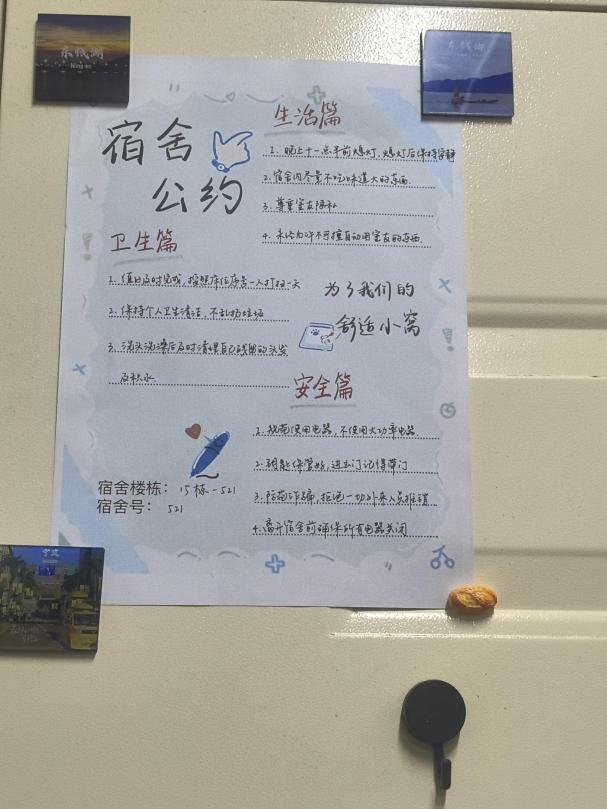 东钱湖
Ning bo
东钱湖
宿舍
公约
生活篇
1. 晚上十一点半前熄灯,熄灯后保持安静
2. 宿舍内尽量不吃味道大的东西.
3. 尊重室友隐私
4. 未经允许不可擅自动用室友的东西.
卫生篇
1. 值日及时完成,按照床位序号一人打扫一天
2. 保持个人卫生清洁,不乱扔垃圾
3. 洗头洗澡后及时清理自己残留的头发
及积水.
为了我们的
舒适小窝
安全篇
1. 规范使用电器,不使用大功率电器.
2. 钥匙保管好,进出门记得带门
3. 防范诈骗,拒绝一切外来人员推销
4. 离开宿舍前确保所有电器关闭
宿舍楼栋: 15栋-521
宿舍号: 521
宁波